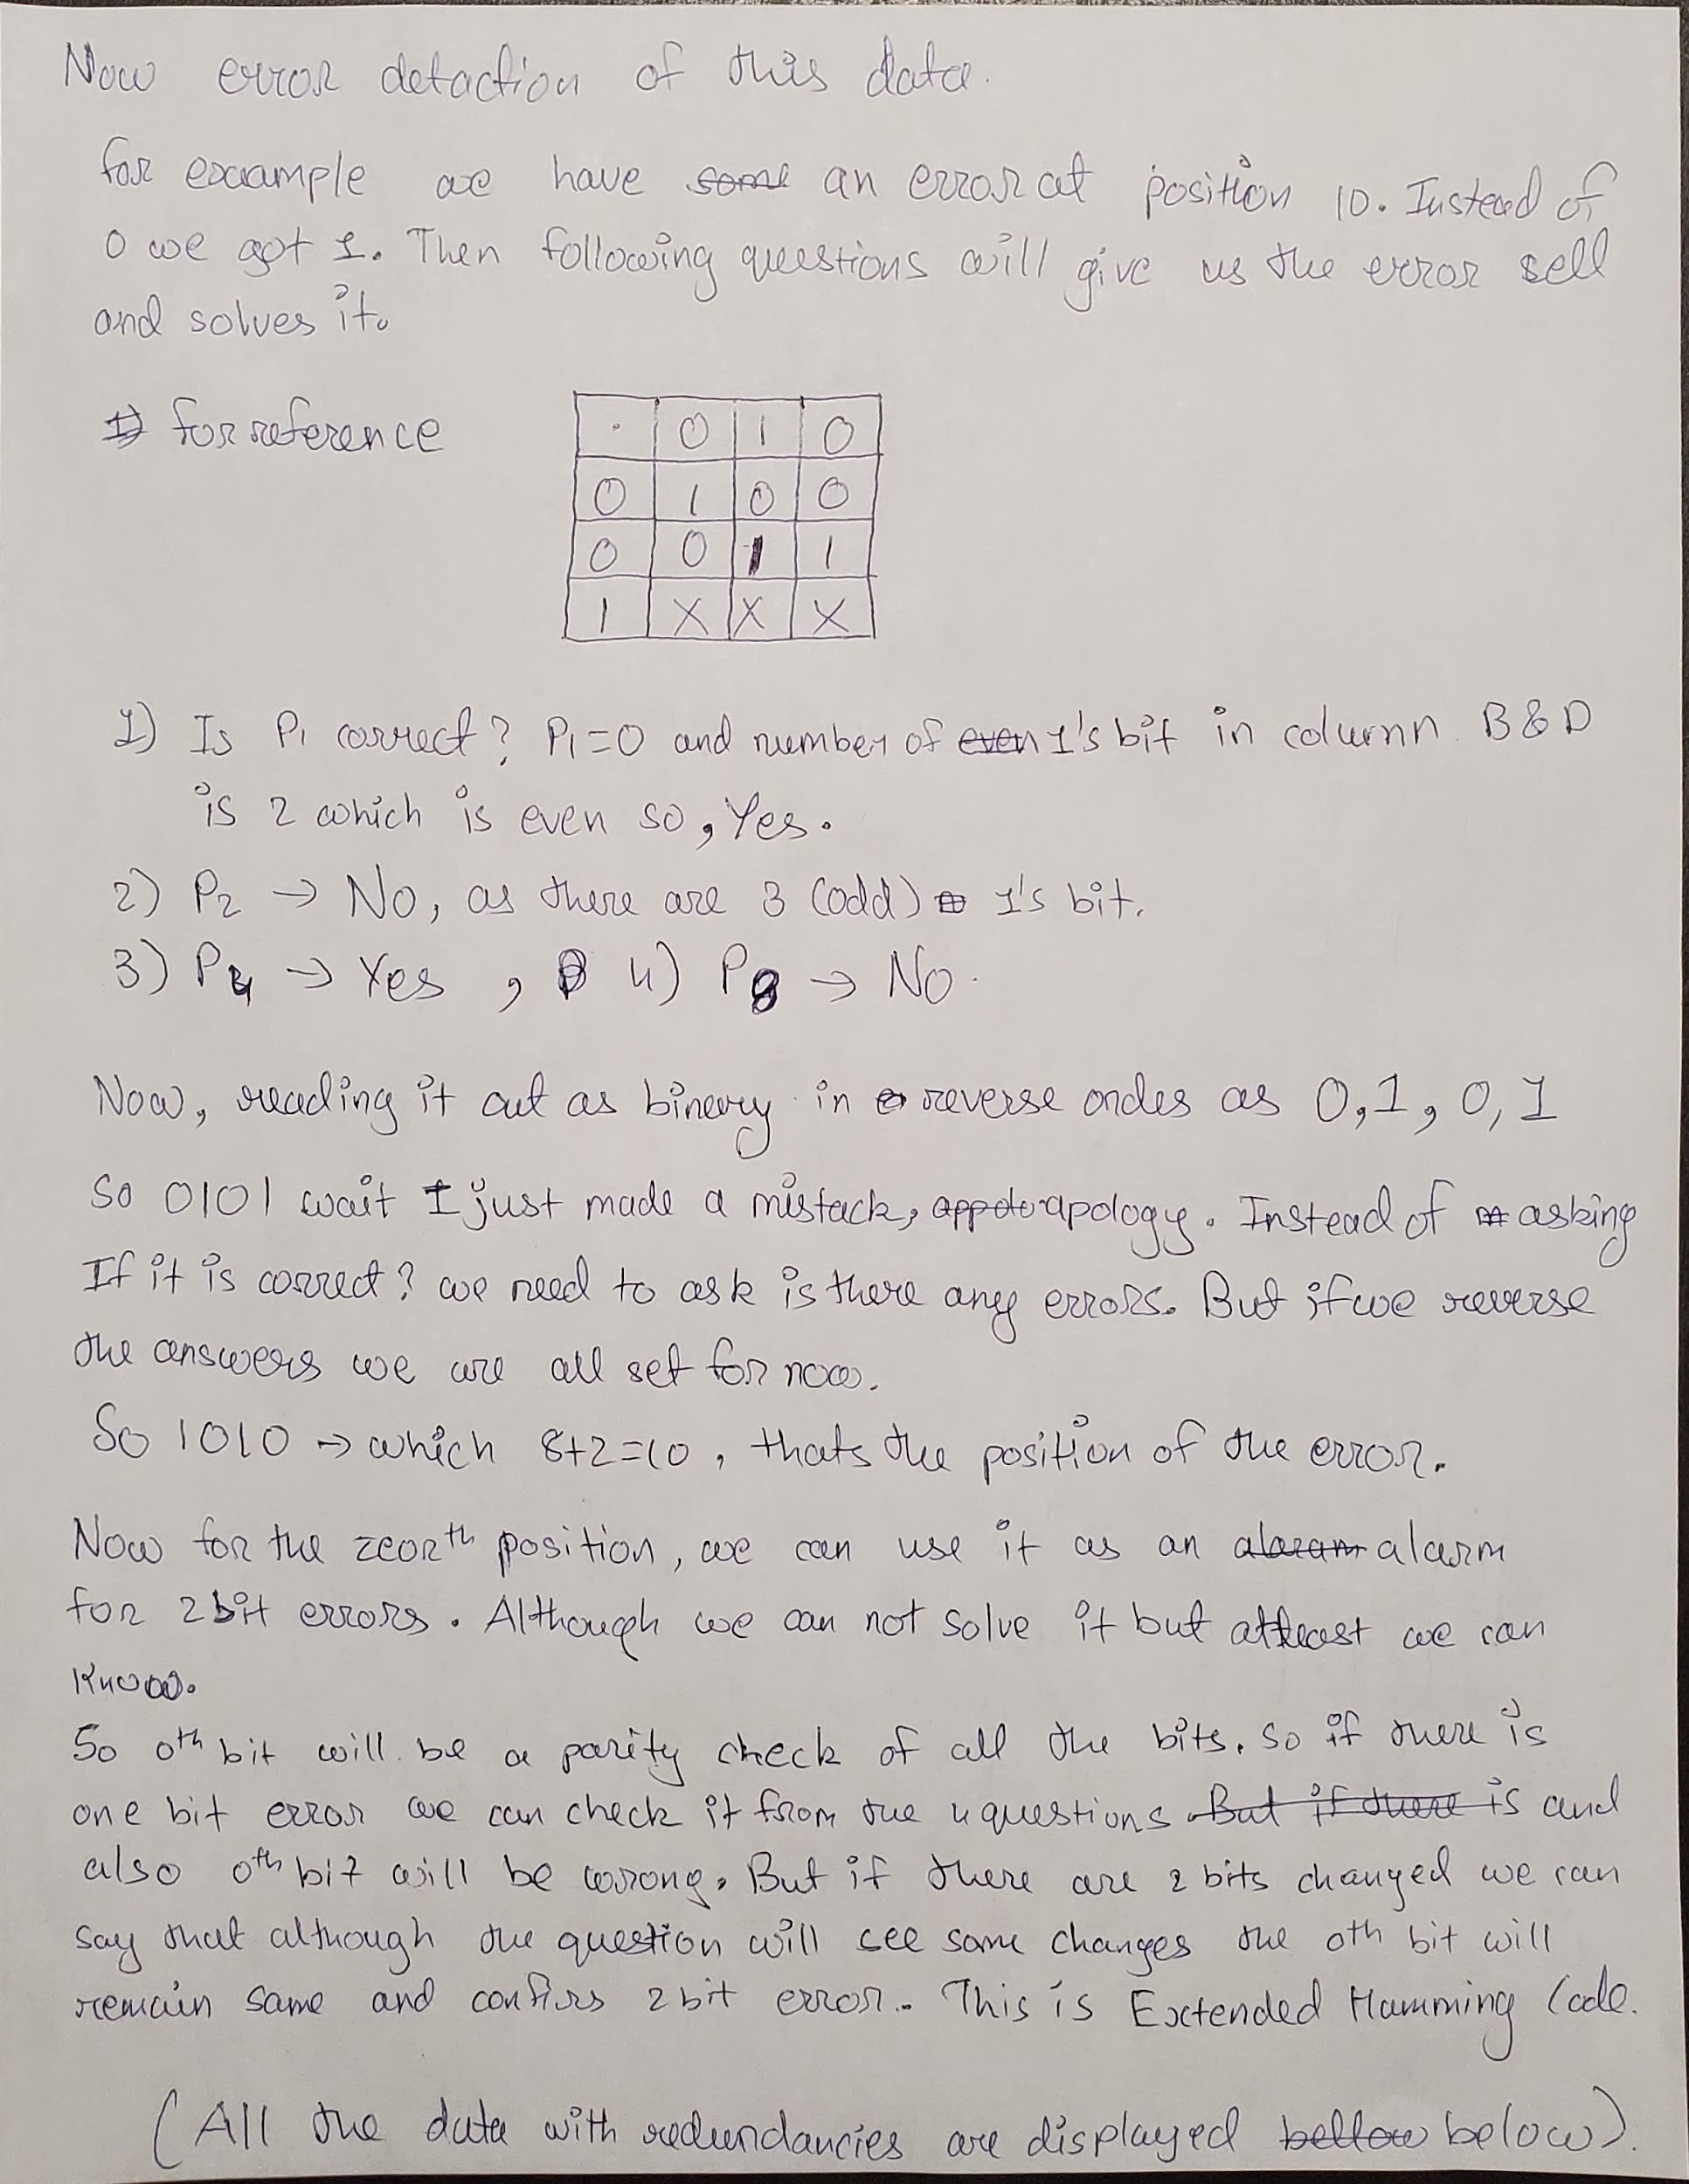 Now error detaction of this data.
for example we have some an error at position 10. Instead of
0 we got 1. Then following questions will give us the error sell
and solves it.
1) for reference
· 0 1 0
0 1 0 0
0 0 1 1
1 X X X
1) Is P1 correct? P1=0 and number of even 1's bit in column B & D
is 2 which is even so, Yes.
2) P2 → No, as there are 3 (odd) 1's bit.
3) P4 → Yes , 4) P8 → No.
Now, reading it out as binery in reverse ondes as 0,1,0,1
So 0101 wait I just made a mistack, appolo apology. Instead of asking
If it is correct? we need to ask is there any errors. But if we reverse
the answers we are all set for now.
So 1010 → which 8+2=10, thats the position of the error.
Now for the zeorth position, we can use it as an alaram alarm
for 2 bit errors. Although we can not solve it but atleast we can
know.
So 0th bit will be a parity check of all the bits. So if there is
one bit error we can check it from the 4 questions. But if there is and
also 0th bit will be wrong. But if there are 2 bits changed we can
say that although the question will see some changes the 0th bit will
remain same and confirs 2 bit error. This is Extended Hamming Code.
(All the data with redundancies are displayed bellow below).